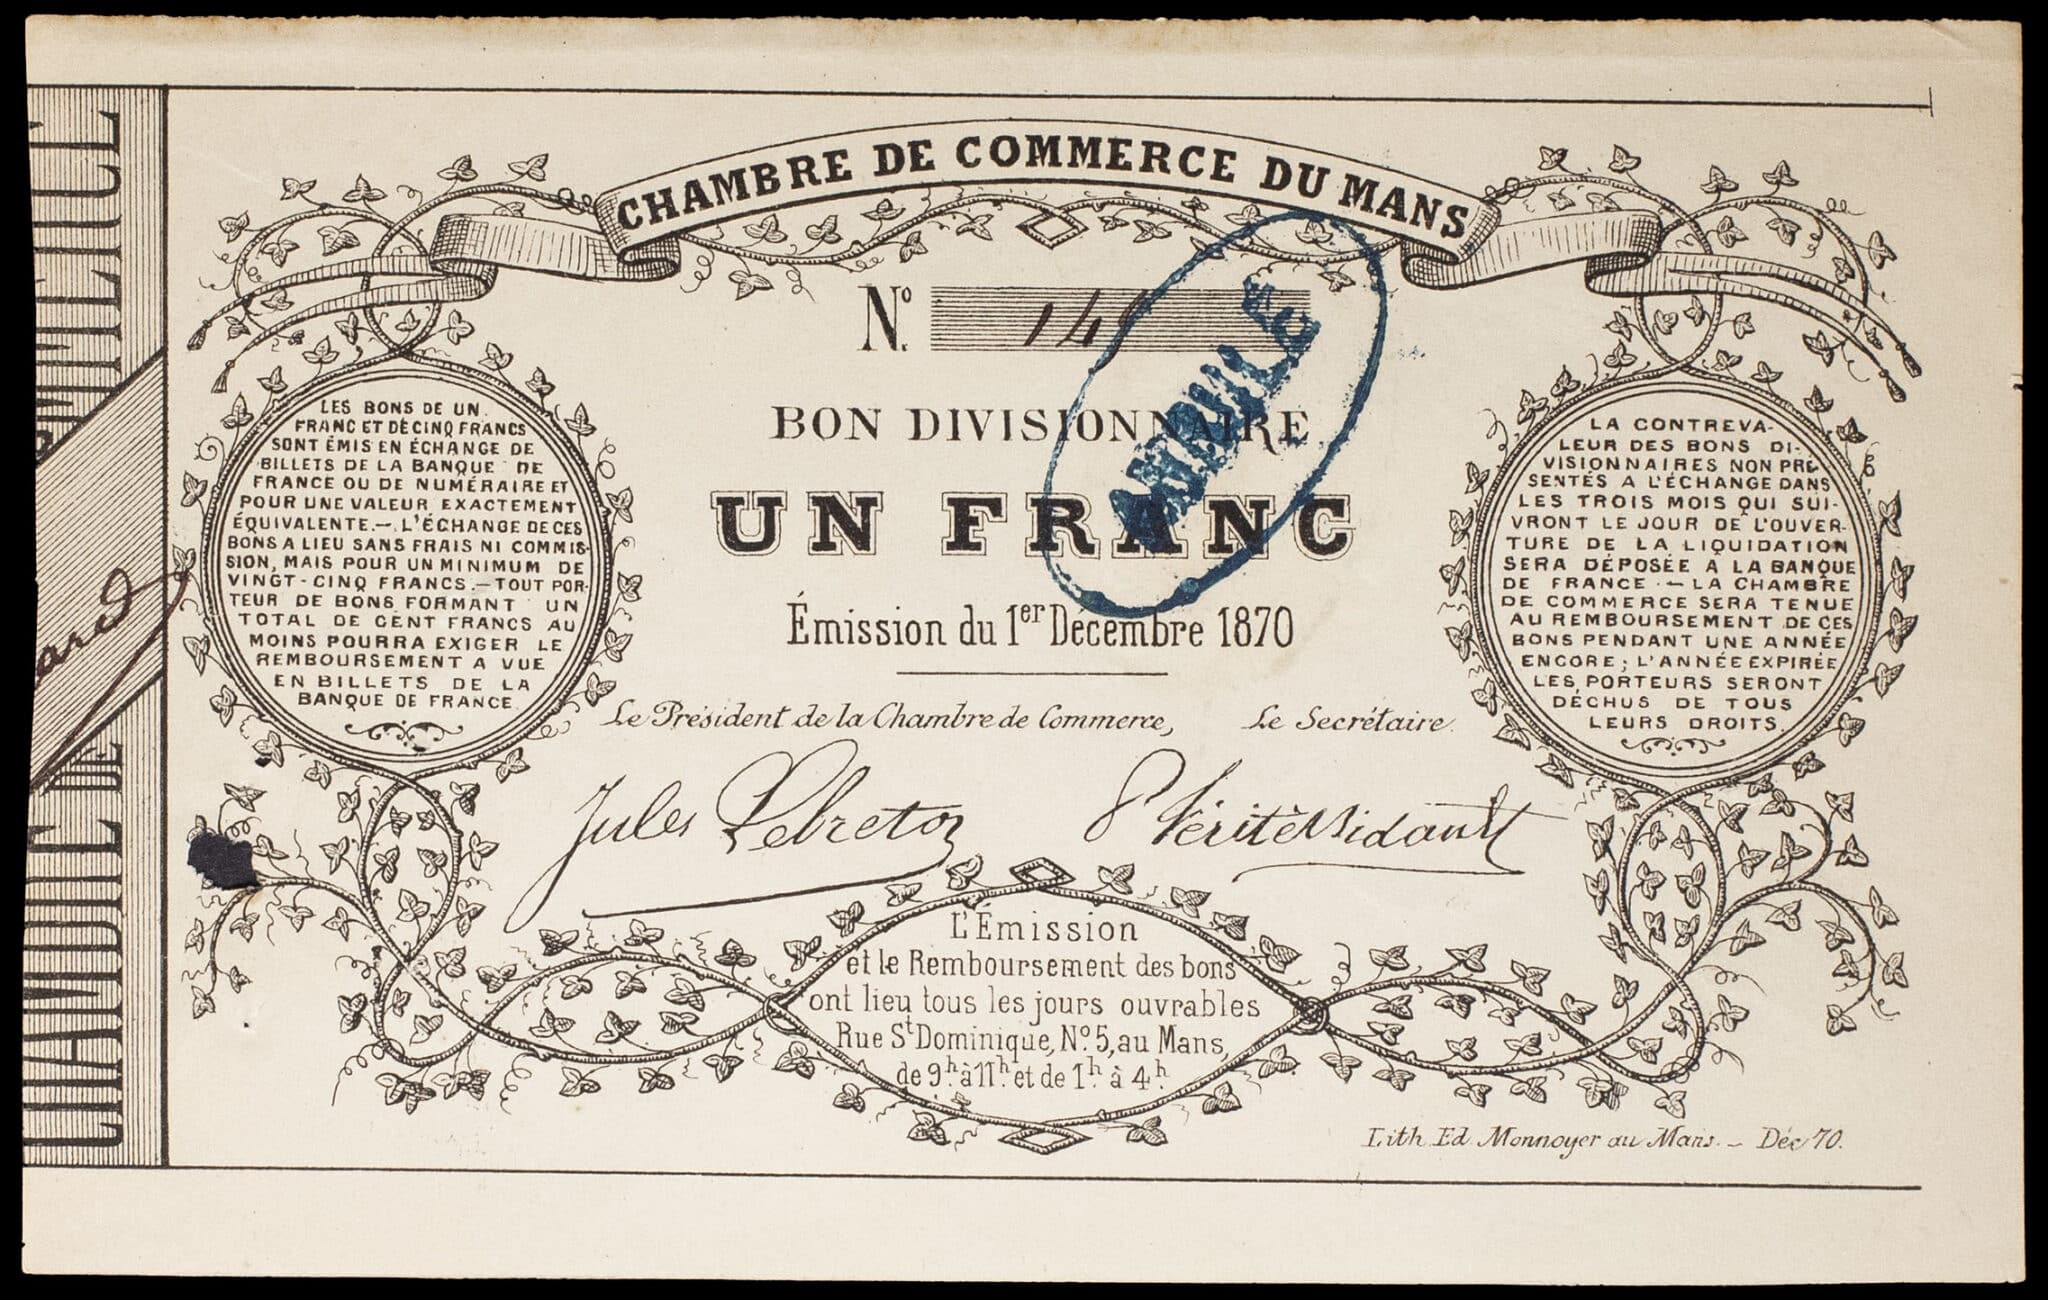 CHAMBRE DE COMMERCE DU MANS
Nº
BON DIVISIONNAIRE
UN FRANC
Émission du 1er Décembre 1870
LES BONS DE UN
FRANC ET DE CINQ FRANCS
SONT ÉMIS EN ÉCHANGE DE
BILLETS DE LA BANQUE DE
FRANCE OU DE NUMÉRAIRE ET
POUR UNE VALEUR EXACTEMENT
ÉQUIVALENTE.— L'ÉCHANGE DE CES
BONS A LIEU SANS FRAIS NI COMMIS-
SION, MAIS POUR UN MINIMUM DE
VINGT-CINQ FRANCS.— TOUT POR-
TEUR DE BONS FORMANT UN
TOTAL DE CENT FRANCS AU
MOINS POURRA EXIGER LE
REMBOURSEMENT A VUE
EN BILLETS DE LA
BANQUE DE FRANCE
LA CONTREVA-
LEUR DES BONS DI-
VISIONNAIRES NON PRÉ-
SENTÉS A L'ÉCHANGE DANS
LES TROIS MOIS QUI SUI-
VRONT LE JOUR DE L'OUVER-
TURE DE LA LIQUIDATION
SERA DÉPOSÉE A LA BANQUE
DE FRANCE.— LA CHAMBRE
DE COMMERCE SERA TENUE
AU REMBOURSEMENT DE CES
BONS PENDANT UNE ANNÉE
ENCORE; L'ANNÉE EXPIRÉE
LES PORTEURS SERONT
DÉCHUS DE TOUS
LEURS DROITS.
Le Président de la Chambre de Commerce, Le Secrétaire.
Jules Lebreton
VéritéVidault
L'Émission
et le Remboursement des bons
ont lieu tous les jours ouvrables
Rue St Dominique, Nº 5, au Mans,
de 9h à 11h et de 1h à 4h
Lith. Ed. Monnoyer au Mans.— Déc 70.